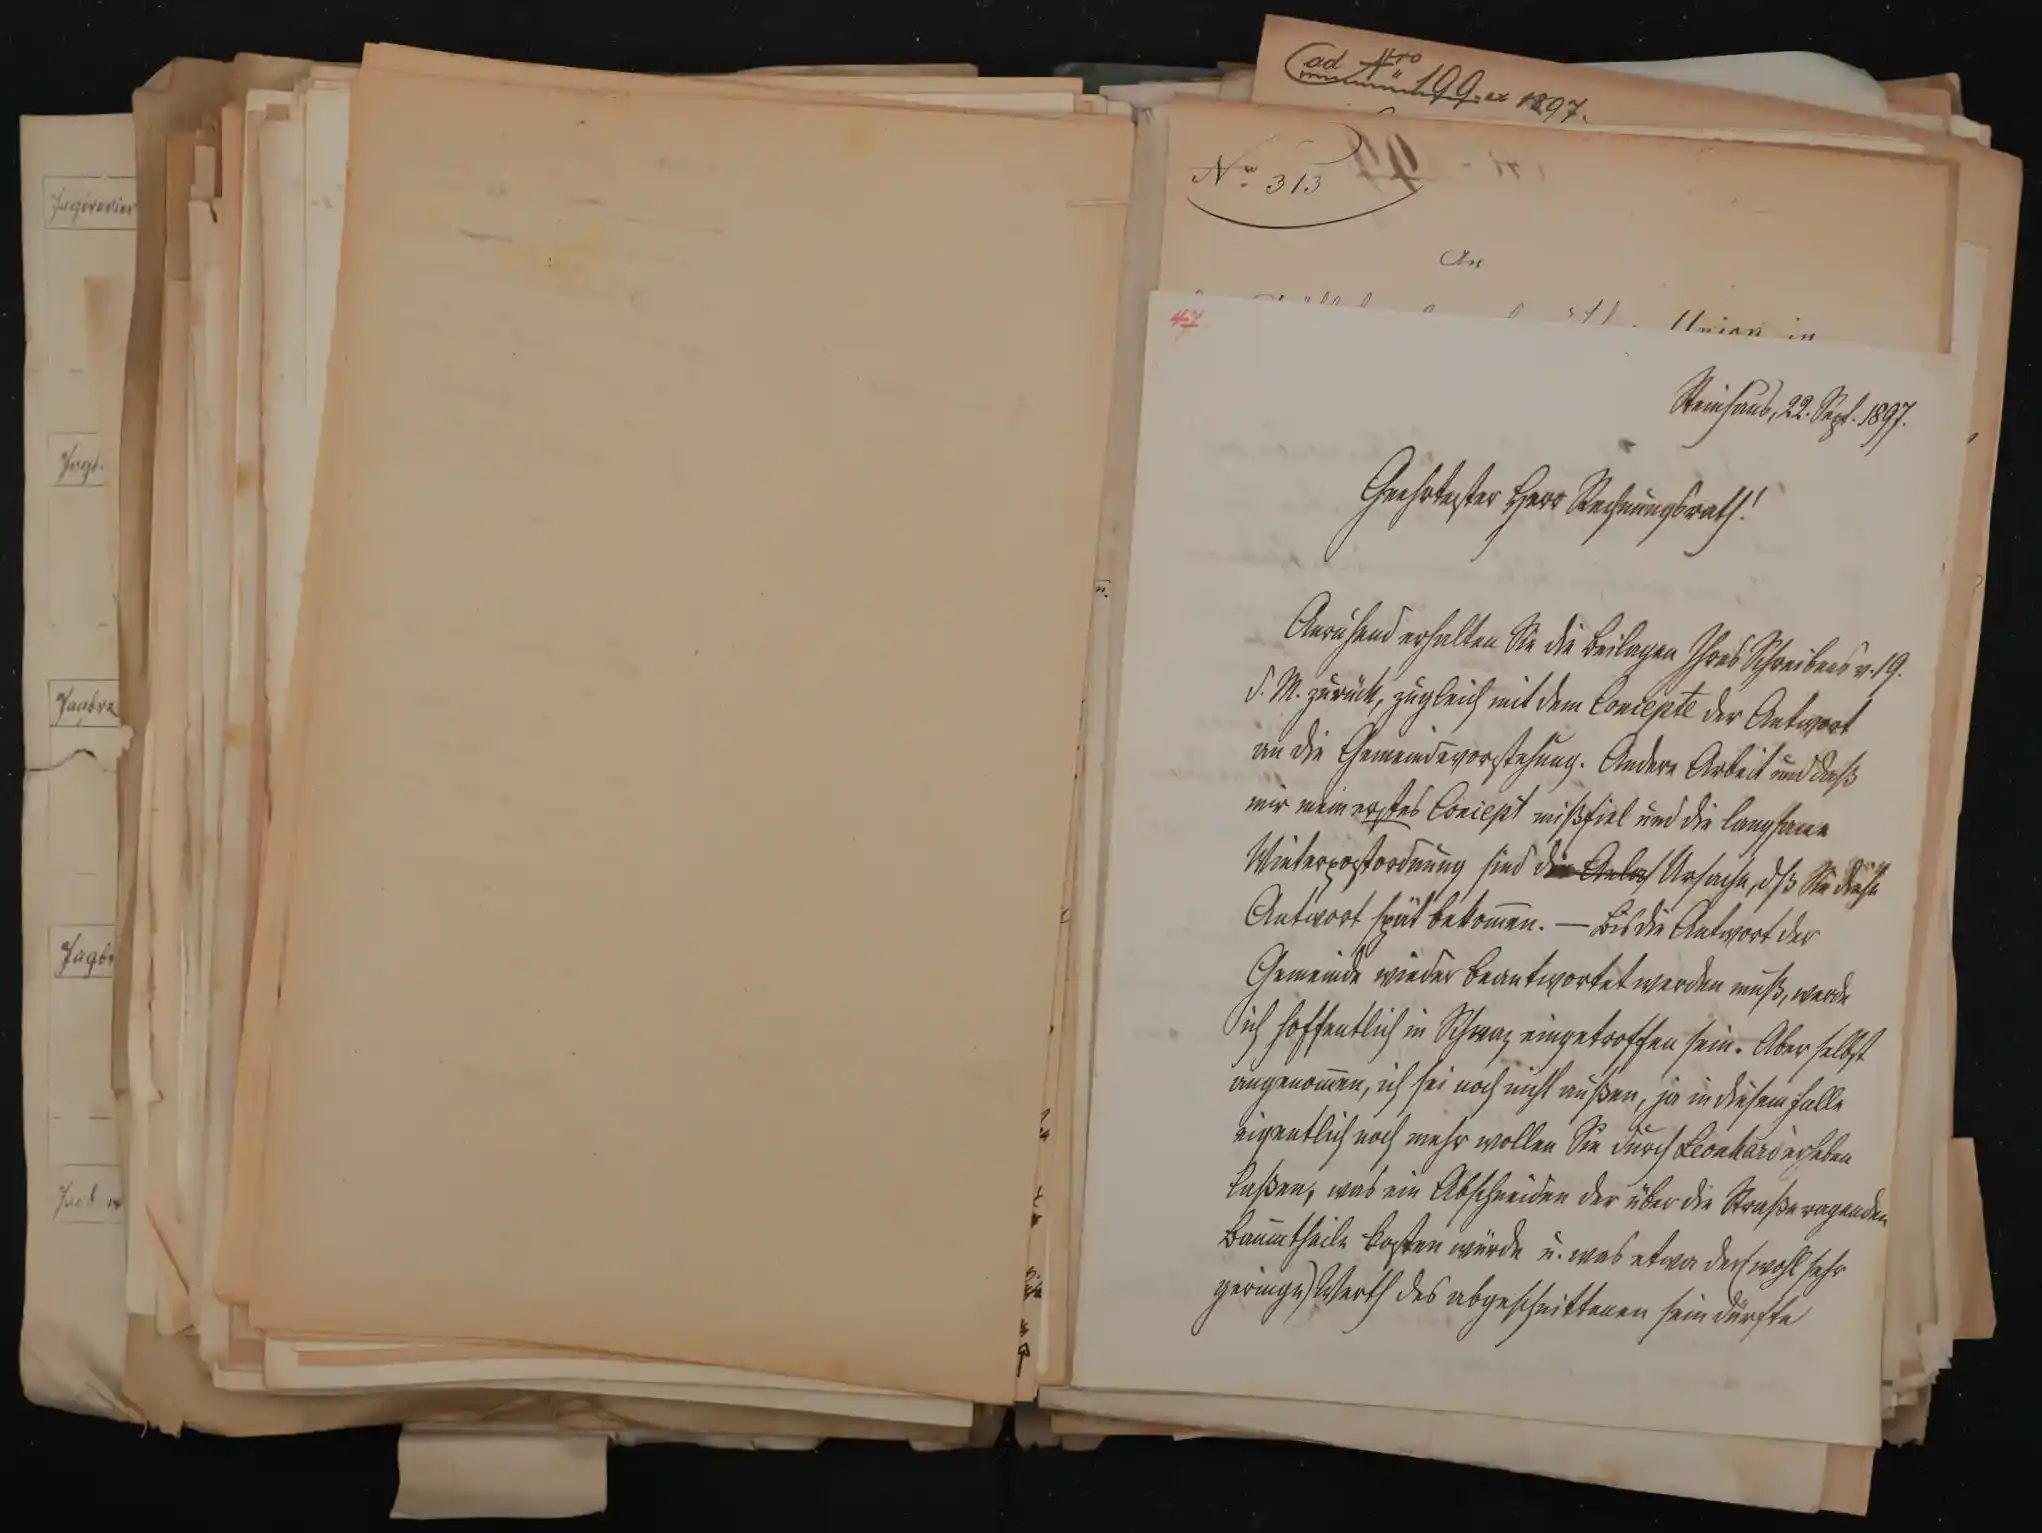 Jagdrevier
Jagd-
Jagdre
Jagdr
Jagd
ad Nro 199 ex 1897.
Nr. 313
An
Union in
47
Steinhaus, 22. Sept. 1897.
Geehrtester Herr Rechnungsrath!
Anruhend erhalten Sie die Beilagen Ihres Schreibens v. 19.
d. M. zurück, zugleich mit dem Concepte der Antwort
an die Gemeindevorstehung. Andere Arbeit und daß
mir mein erstes Concept mißfiel und die langsame
Winterpostordnung sind die Anlaß Ursache, dß Sie diese
Antwort spät bekommen. — Bis die Antwort der
Gemeinde wieder beantwortet werden muß, werde
ich hoffentlich in Schwaz eingetroffen sein. Aber selbst
angenommen, ich sei noch nicht außen, ja in diesem Falle
eigentlich noch mehr wollen Sie durch Leonhard erheben
laßen, was ein Abschneiden der über die Straße ragenden
Baumtheile kosten würde u. was etwa der (wohl sehr
geringe) Werth des abgeschnittenen sein dürfte